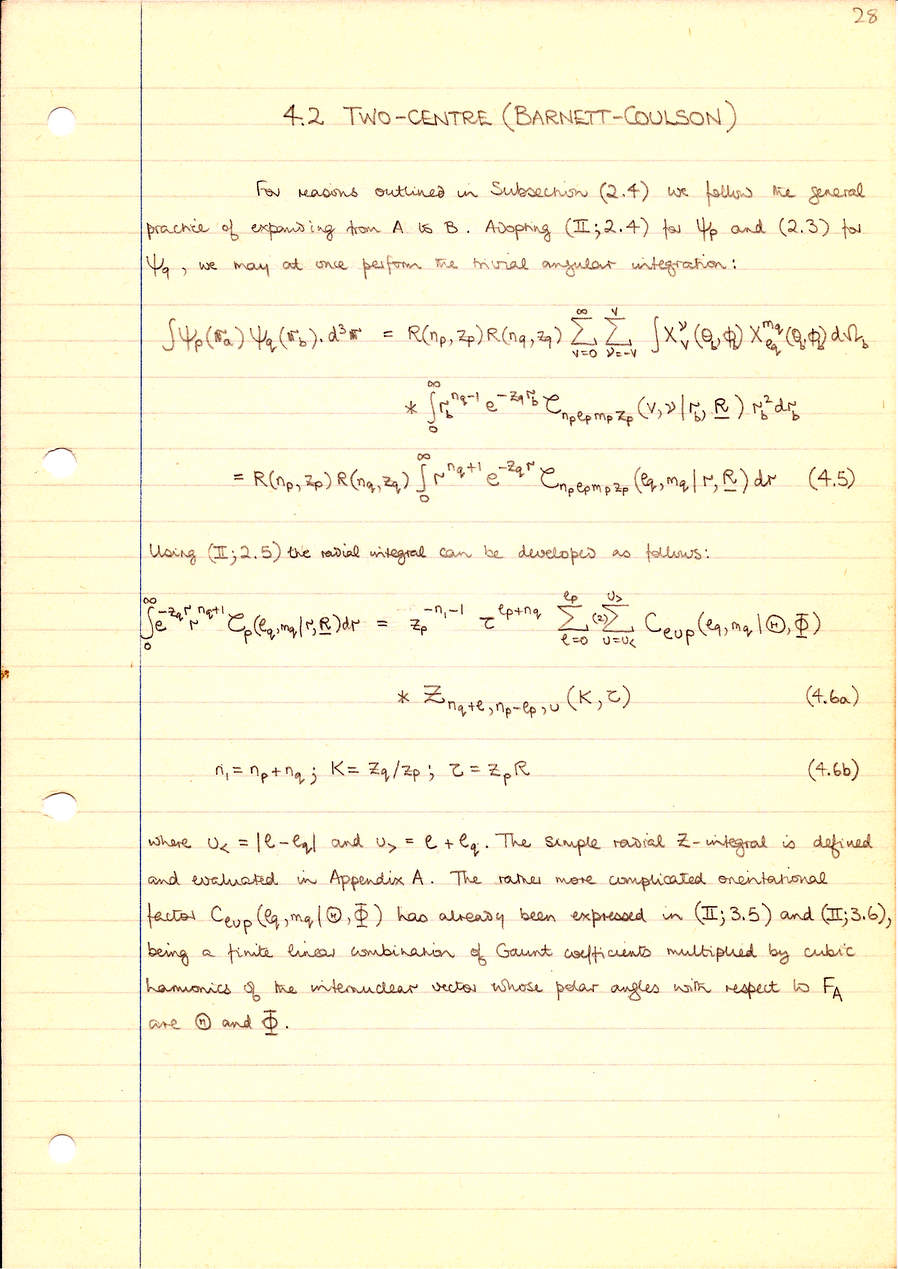 28
4.2 TWO-CENTRE (BARNETT-COULSON)
For reasons outlined in Subsection (2.4) we follow the general
practice of expanding from A to B. Adopting (II;2.4) for ψ_p and (2.3) for
ψ_q, we may at once perform the trivial angular integration:
∫ψ_p(r_a) ψ_q(r_b).d³r = R(n_p,z_p)R(n_q,z_q) ∑_{v=0}^{∞} ∑_{ν=-v}^{v} ∫X_v^ν(θ_b,ϕ_b) X_{ℓ_q}^{m_q}(θ_b,ϕ_b) dΩ_b
* ∫_0^∞ r_b^{n_q-1} e^{-z_q r_b} ζ_{n_p ℓ_p m_p z_p}(v,ν|r_b,R) r_b² dr_b
= R(n_p,z_p)R(n_q,z_q) ∫_0^∞ r^{n_q+1} e^{-z_q r} ζ_{n_p ℓ_p m_p z_p}(ℓ_q,m_q|r,R) dr (4.5)
Using (II;2.5) the radial integral can be developed as follows:
∫_0^∞ e^{-z_q r} r^{n_q+1} ζ_p(ℓ_q,m_q|r,R)dr = z_p^{-n_1-1} τ^{ℓ_p+n_q} ∑_{ℓ=0}^{ℓ_p} ^{(2)}∑_{u=u_<}^{u_>} C_{ℓup}(ℓ_q,m_q|Θ,Φ)
* Z_{n_q+ℓ,n_p-ℓ_p,u}(K,τ) (4.6a)
n_1 = n_p+n_q; K = z_q/z_p; τ = z_p R (4.6b)
where u_< = |ℓ-ℓ_q| and u_> = ℓ+ℓ_q. The simple radial Z-integral is defined
and evaluated in Appendix A. The rather more complicated orientational
factor C_{ℓup}(ℓ_q,m_q|Θ,Φ) has already been expressed in (II;3.5) and (II;3.6),
being a finite linear combination of Gaunt coefficients multiplied by cubic
harmonics of the internuclear vector whose polar angles with respect to F_A
are Θ and Φ.